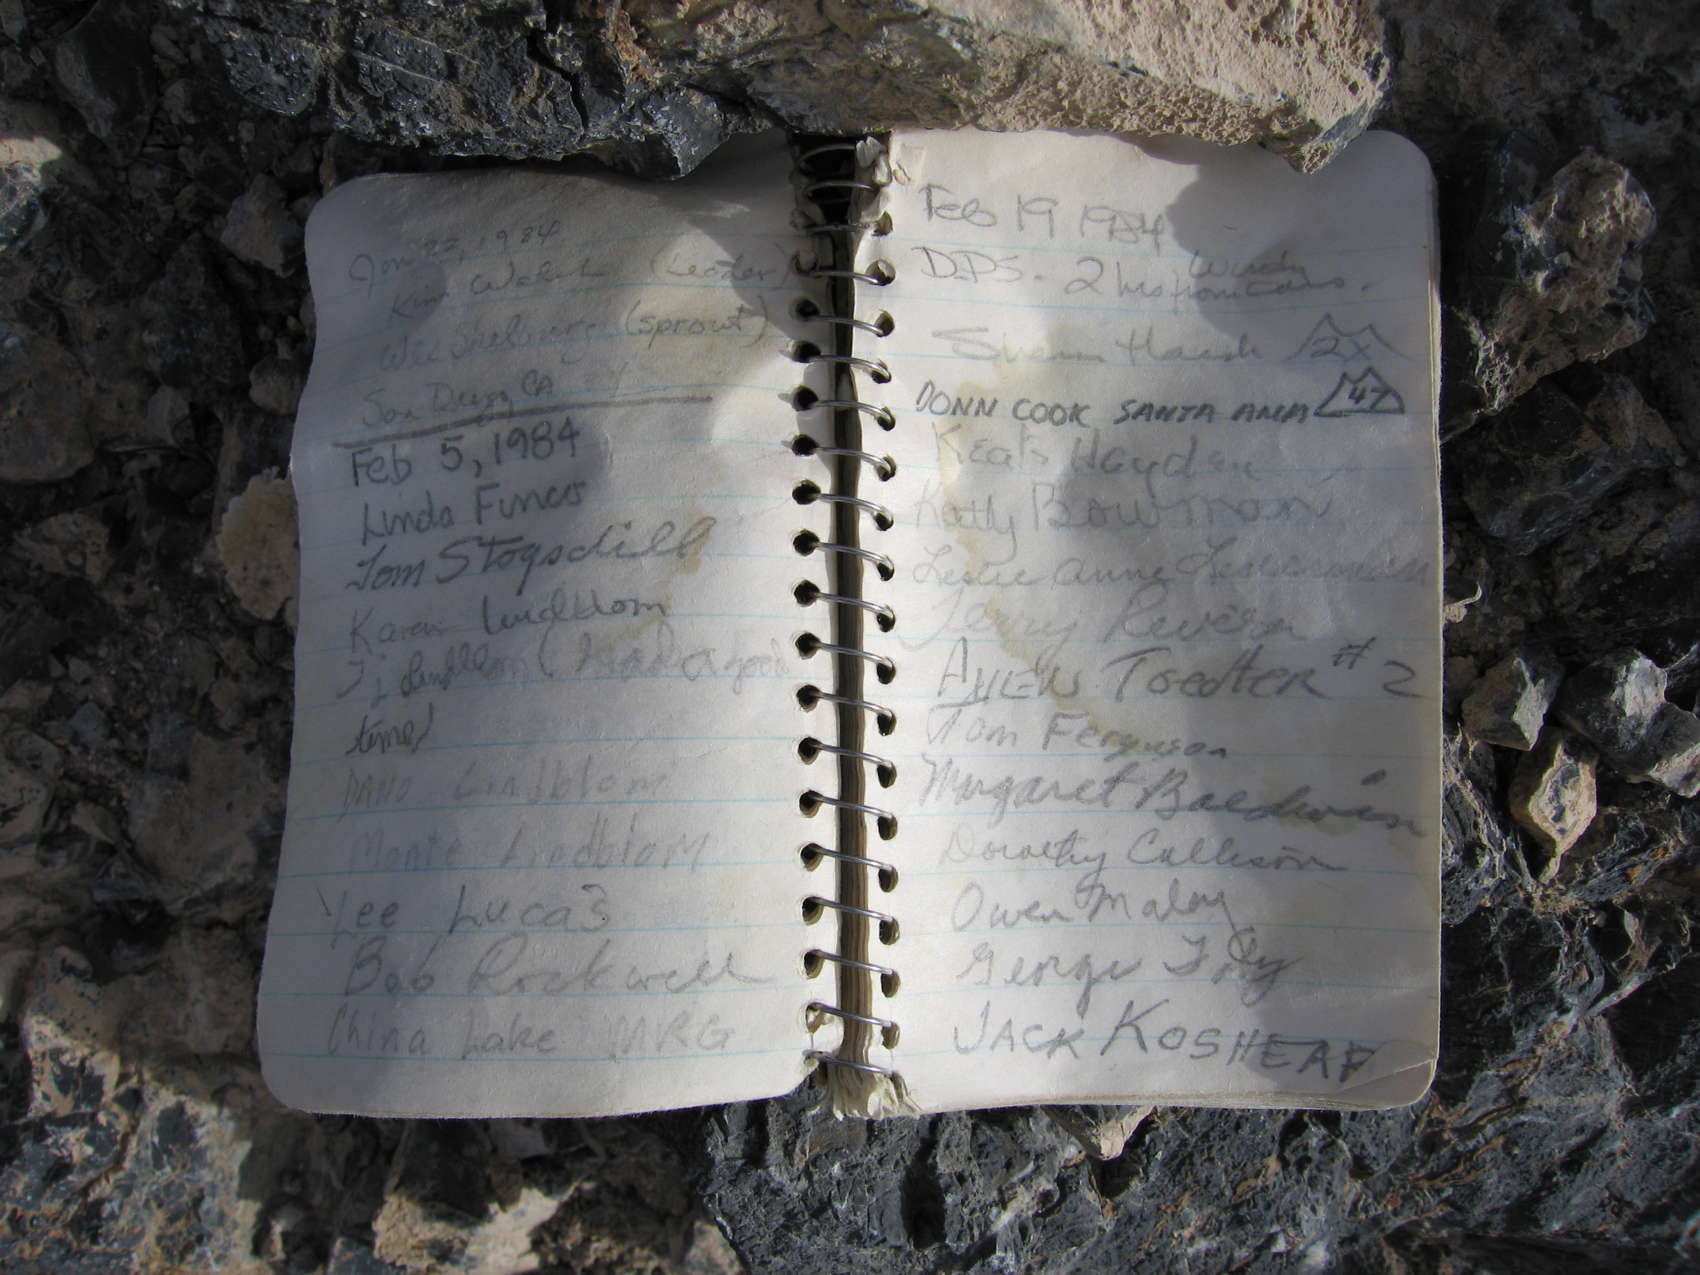 Jan 22, 1984
Kim Walsh (Leader)
(sprout)
San Diego, CA
Feb 5, 1984
Linda Finco
Tom Stogsdill
Karen Lindblom
Tj Lindblom (had a good
time)
Lindblom
Monte Lindblom
Lee Lucas
Bob Rockwell
China Lake MRG
Feb 19 1984
DPS. 2 hrs from cars. Windy
2X
DONN COOK SANTA ANA 47
Hayden
Kathy Bowman
Leslie Anne
Jerry
Toedter #2
Tom Ferguson
Margaret Baldwin
Dorothy Callison
Owen Maloy
George
JACK KOSHEAF